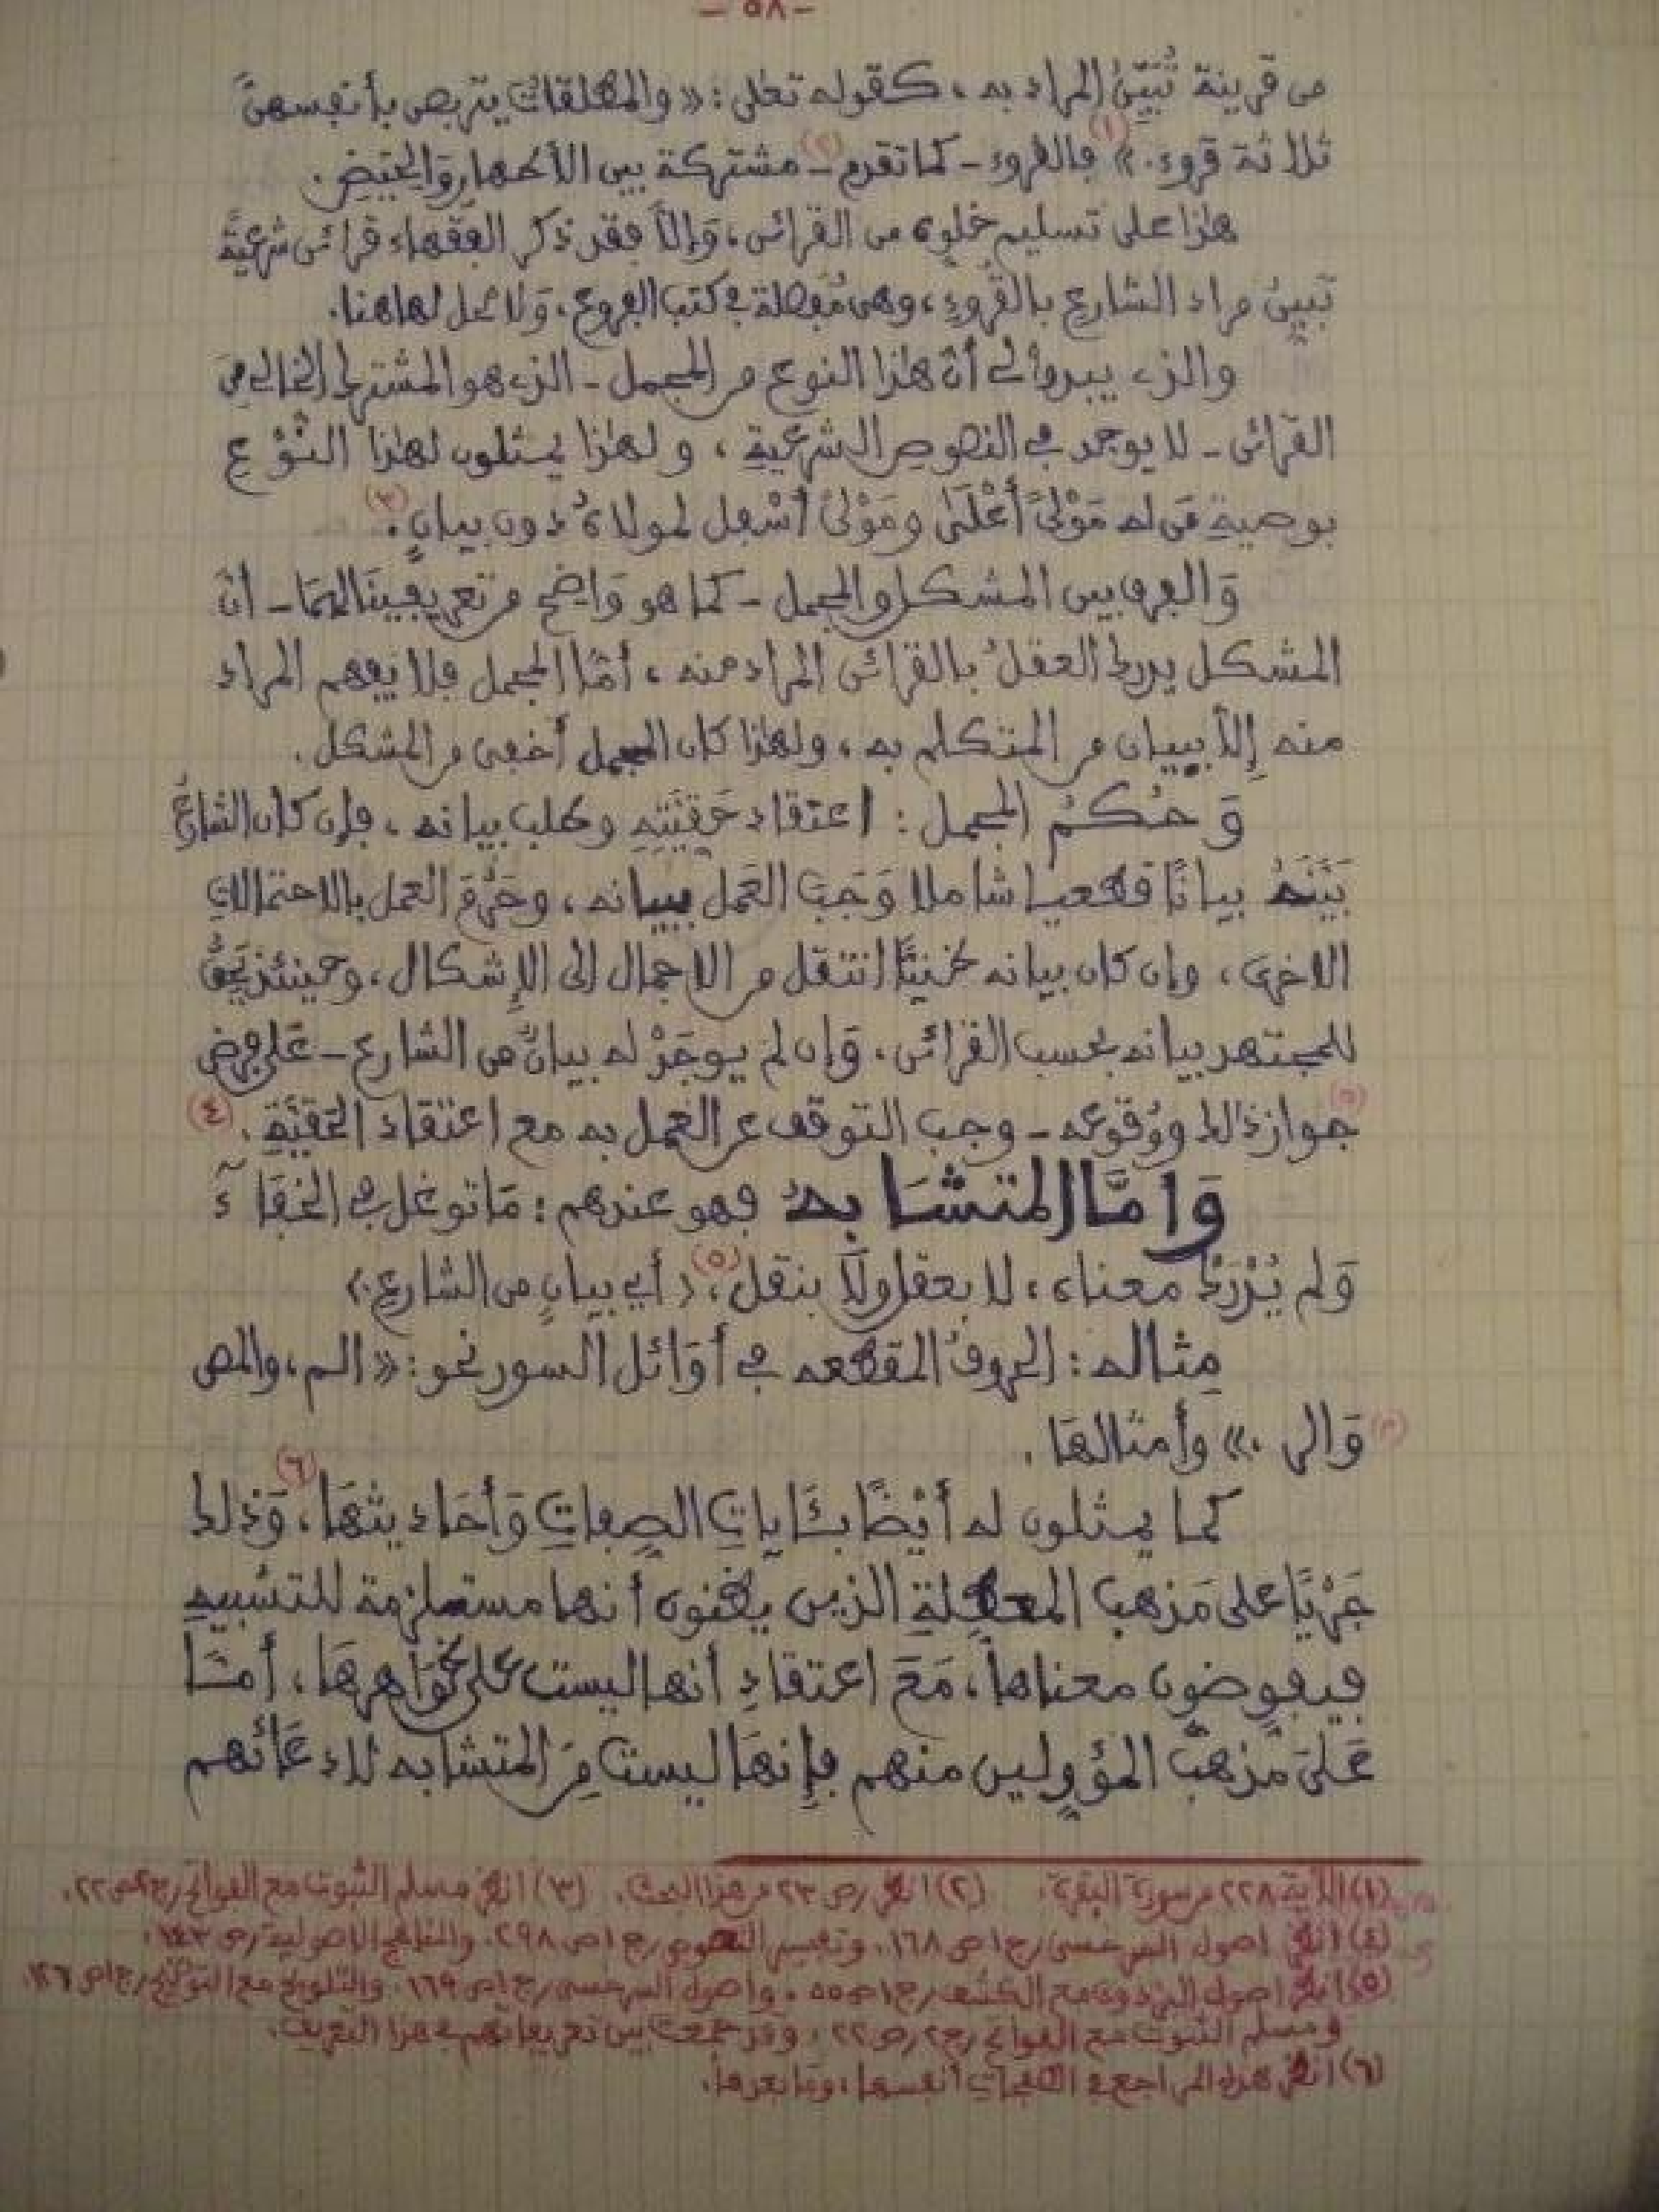 - ٥٨ -
من قرينة تُبَيِّنُ المراد به ، كقوله تعلى : « والمطلقاتُ يتربصن بأنفسهنَّ
ثلاثة قروء . » (١) فالقروء - كما تقدم (٢) - مشتركة بين الأطهارِ وَالحِيَضِ .
هاذا على تسليم خلوه من القرائن ، وَإلاَّ فقد ذكر الفقهاء قرائن شرعيَّة
تبيِّنُ مراد الشارع بالقُروءِ ، وهى مُفصلة في كتب الفروع ، وَلا محل لها هنا .
والذي يبدوا لي أنَّ هاذا النوع من المجمل - الذي هو المشترك الخالي مِن
القرائن - لا يوجد في النصوصِ الشرعيةِ ، ولهاذا يمثلون لهاذا النَّوْعِ
بوصيةِ مَن له مَوْلىً أَعْلَىٰ ومَوْلىً أَسْفل لمولاهُ دون بيانٍ . (٣)
وَالفرق بين المشكل والمجمل - كما هو وَاضح من تعريفينا لهمَا - أنَّ
المشكل يدرك العقلُ بالقرائن المراد منه ، أمَّا المجمل فلا يفهم المراد
منه إِلاَّ ببيان من المتكلم به ، ولهاذا كان المجمل أخفى من المشكل .
وَحُكمُ المجمل : اعتقاد حَقِّيَّتِهِ وطلب بيانه ، فإن كان الشارعُ
بَيَّنَهُ بيانًا قطعيا شاملا وَجَبَ العَمل ببيانه ، وحَرُمَ العمل بالاحتمالاتِ
الاخرى ، وإن كان بيانه ظنيًّا انتقل من الاجمال إلى الإشكال ، وحينئذ يَحِقُّ
للمجتهد بيانه بحسب القرائن . وَإن لم يوجَدْ له بيانٌ من الشارع - عَلى فرضِ
جواز ذالك ووُقوعه - وجب التوقف عن العمل به مع اعتقاد الحَقِّيَّةِ . (٤)
وَامَّا المتشَابهُ فهو عندهم : مَا توغل في الخفَآءِ
وَلم يُدْرَكْ معناه ، لا بعقل ولا بنقل ، (٥) ( أي بيانٍ من الشارعِ . )
مِثاله : الحروفُ المقطعه في أوَائل السور نحو : « الم ، والمص
وَالر . » وأمثالهَا .
كما يمثلون له أيْضًا بئَاياتِ الصِفاتِ وَأحَاديثهَا ، (٦) وَذلك
جَرْيًا على مَذهب المعطِلةِ الذين يظنون أنها مستلزمة للتشبيهِ
فيفوضون معناها ، مَعَ اعتقادِ أنها ليست على ظوَاهرهَا ، أمَّا
عَلىَ مَذهب المؤولين منهم فإنهَا ليست مِنَ المتشابه لادعَائهم
(١) الأية ٢٢٨ من سورة البقرة . (٢) انظر ص ٢٣ من هذا البحث . (٣) انظر مسلم الثبوت مع الفواتح ج ٢ ص ٢٢ .
(٤) انظر اصول السرخسي ج ١ ص ١٦٨ . وتفسير النصوص ج ١ ص ٢٩٨ . والمناهج الاصولية ص ١٤٣ .
(٥) انظر اصول البزدوى مع الكشف ج ١ ص ٥٥ . واصول السرخسي ج ١ ص ١٦٩ . والتلويح مع التوضيح ج ١ ص ١٢٦ .
ومسلم الثبوت مع الفواتح ج ٢ ص ٢٢ . وقد جمعت بين تعريفاتهم في هذا التعريف .
(٦) انظر هذه المراجع في الصفحات أنفسها ، وما بعدها .